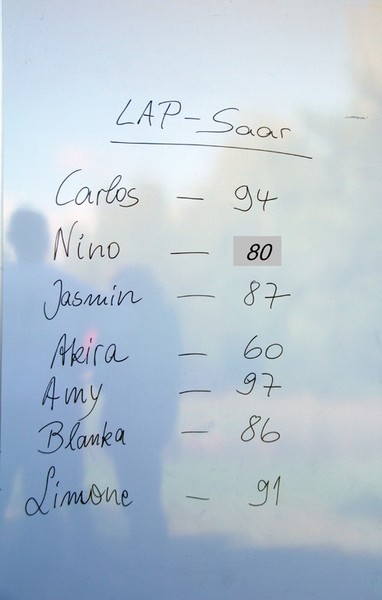 LAP-Saar
Carlos — 94
Nino — 80
Jasmin — 87
Akira — 60
Amy — 97
Blanka — 86
Limone — 91